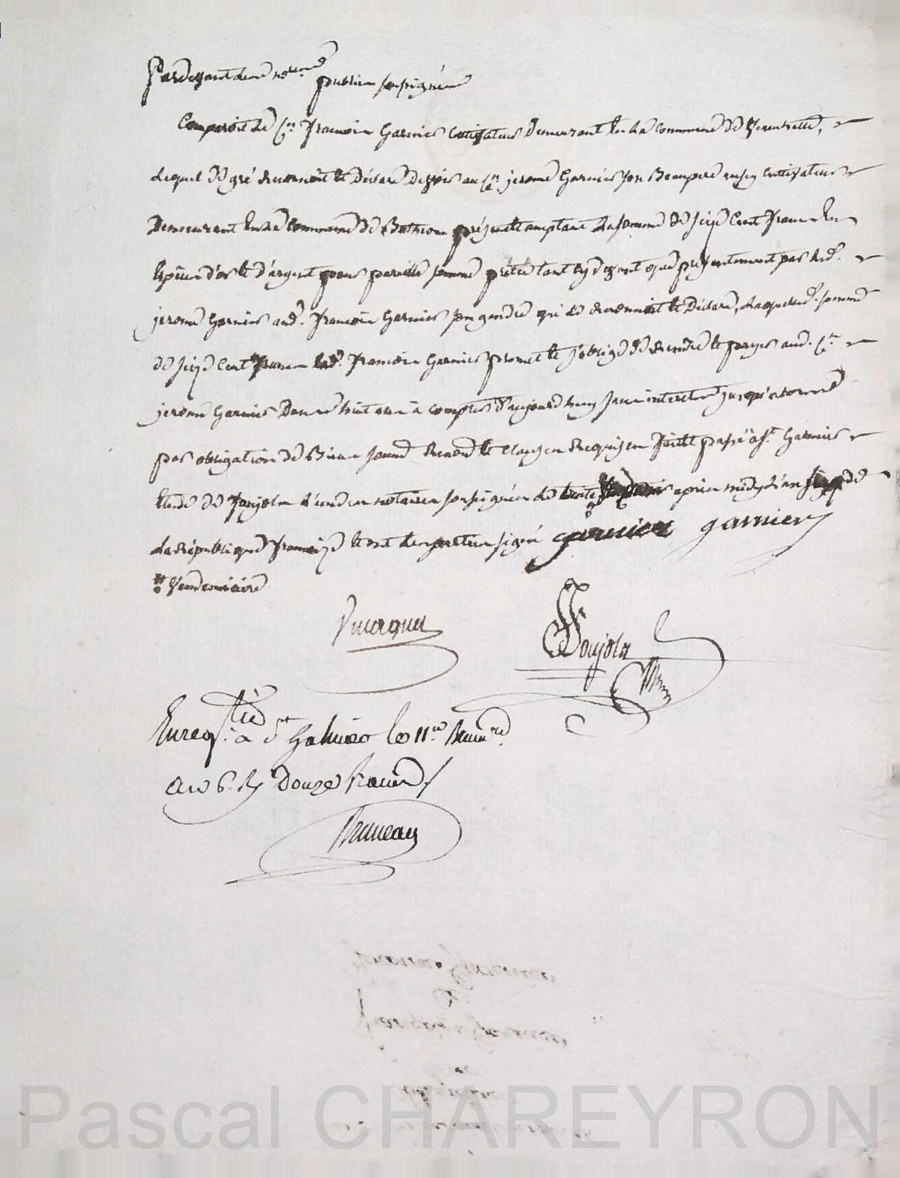 Pardevant les notaires publics soussignés
Comparoit le Cen. françois Garnier Cultivateur Demeurant en la commune de
Lequel de gré reconnoit et Déclare Devoir au Cen. jerome Garnier son Beaupere aussy Cultivateur
Demeurant en la commune de présent et acceptant la somme de seize Cent francs en
Espèces d'or et d'argent pour pareille somme prêtée tant cy devant que présentement par led.
jerome Garnier aud. françois Garnier son gendre qui le reconnoit et Déclare, Laquelle d. somme
de seize Cent francs led. françois Garnier promet et s'oblige de rendre et payer aud. Cen.
jerome Garnier Dans huit ans à compter d'aujourd'huy sans interets jusqu'à terme
par obligation de Biens soumis renoncé et Clauses Requises fait et passé à st. Galmier
Etude de Soujola l'un des notaires soussignés le après midy l'an de
La République française et ont les parties signé garnier garnier
Vendemiaire
Soujola
Enregistré à St Galmier le 11 Brumre
an 6. Rç Douze francs
Bruneau
Pascal CHAREYRON